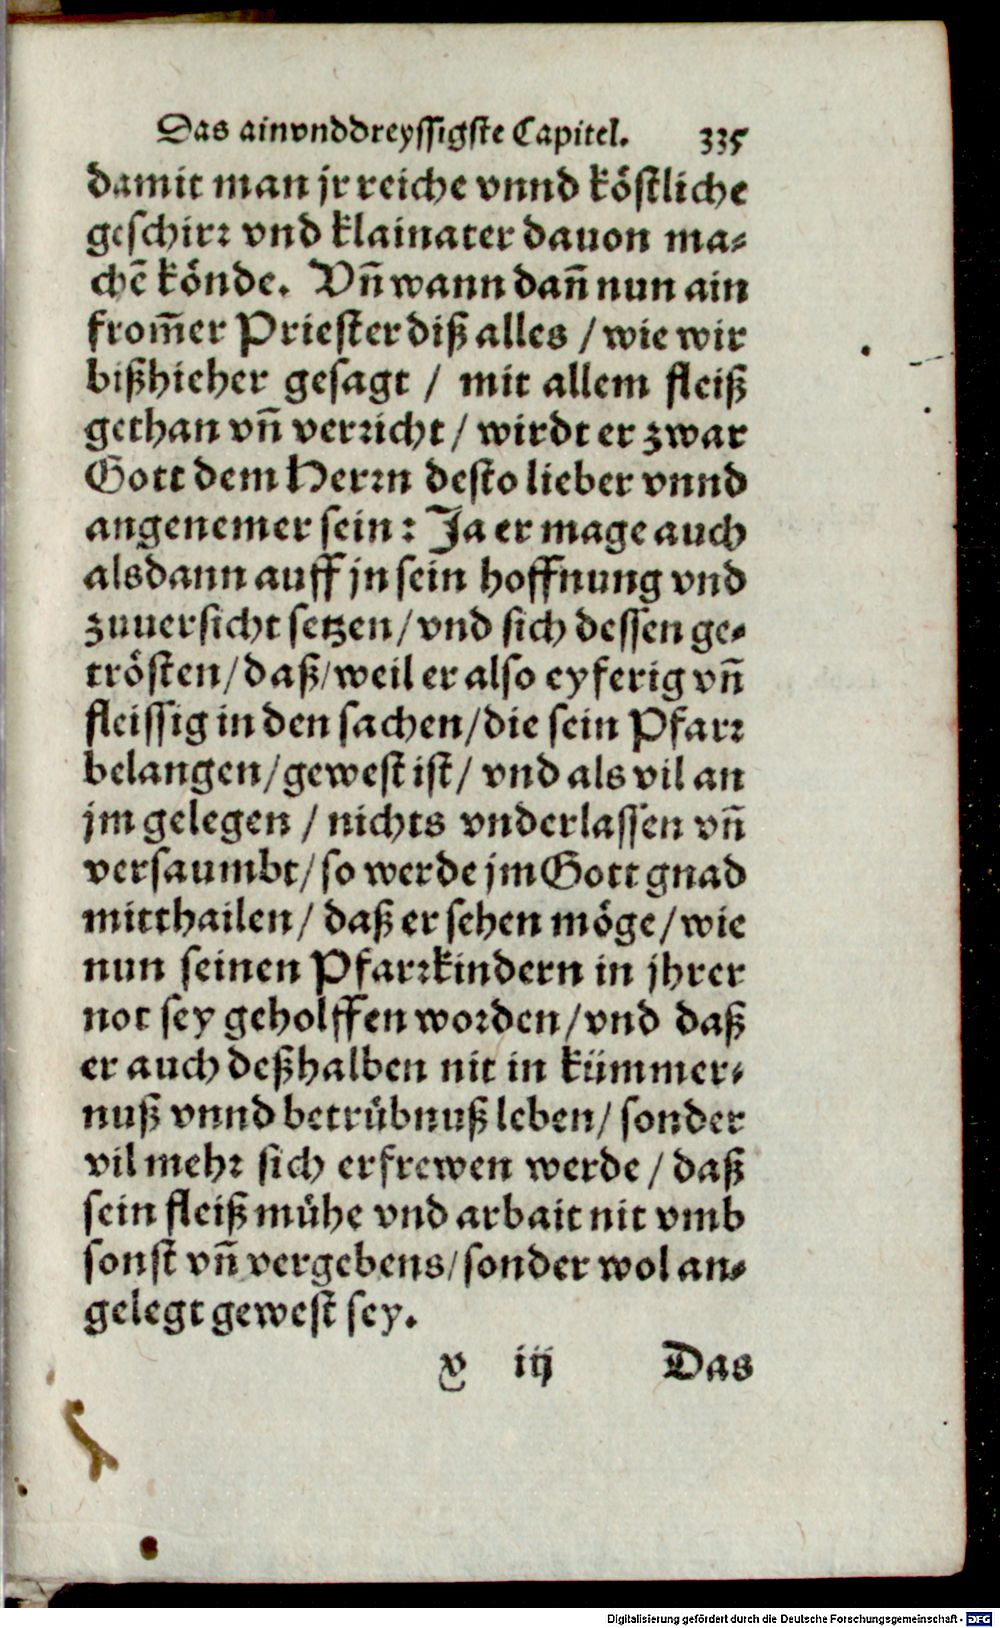 Das ainvnddreyssigste Capitel. 335
damit man jr reiche vnnd köstliche
geschirr vnd klainater dauon ma-
chē könde. Vñ wann dañ nun ain
from̃er Priester diß alles / wie wir
bißhieher gesagt / mit allem fleiß
gethan vñ verricht / wirdt er zwar
Gott dem Herrn desto lieber vnnd
angenemer sein: Ja er mage auch
alsdann auff jn sein hoffnung vnd
zuuersicht setzen / vnd sich dessen ge-
trösten / daß / weil er also eyferig vñ
fleissig in den sachen / die sein Pfarr
belangen / gewest ist / vnd als vil an
jm gelegen / nichts vnderlassen vñ
versaumbt / so werde jm Gott gnad
mitthailen / daß er sehen möge / wie
nun seinen Pfarrkindern in jhrer
not sey geholffen worden / vnd daß
er auch deßhalben nit in kümmer-
nuß vnnd betrübnuß leben / sonder
vil mehr sich erfrewen werde / daß
sein fleiß mühe vnd arbait nit vmb
sonst vñ vergebens / sonder wol an-
gelegt gewest sey.
v iij Das
Digitalisierung gefördert durch die Deutsche Forschungsgemeinschaft - DFG